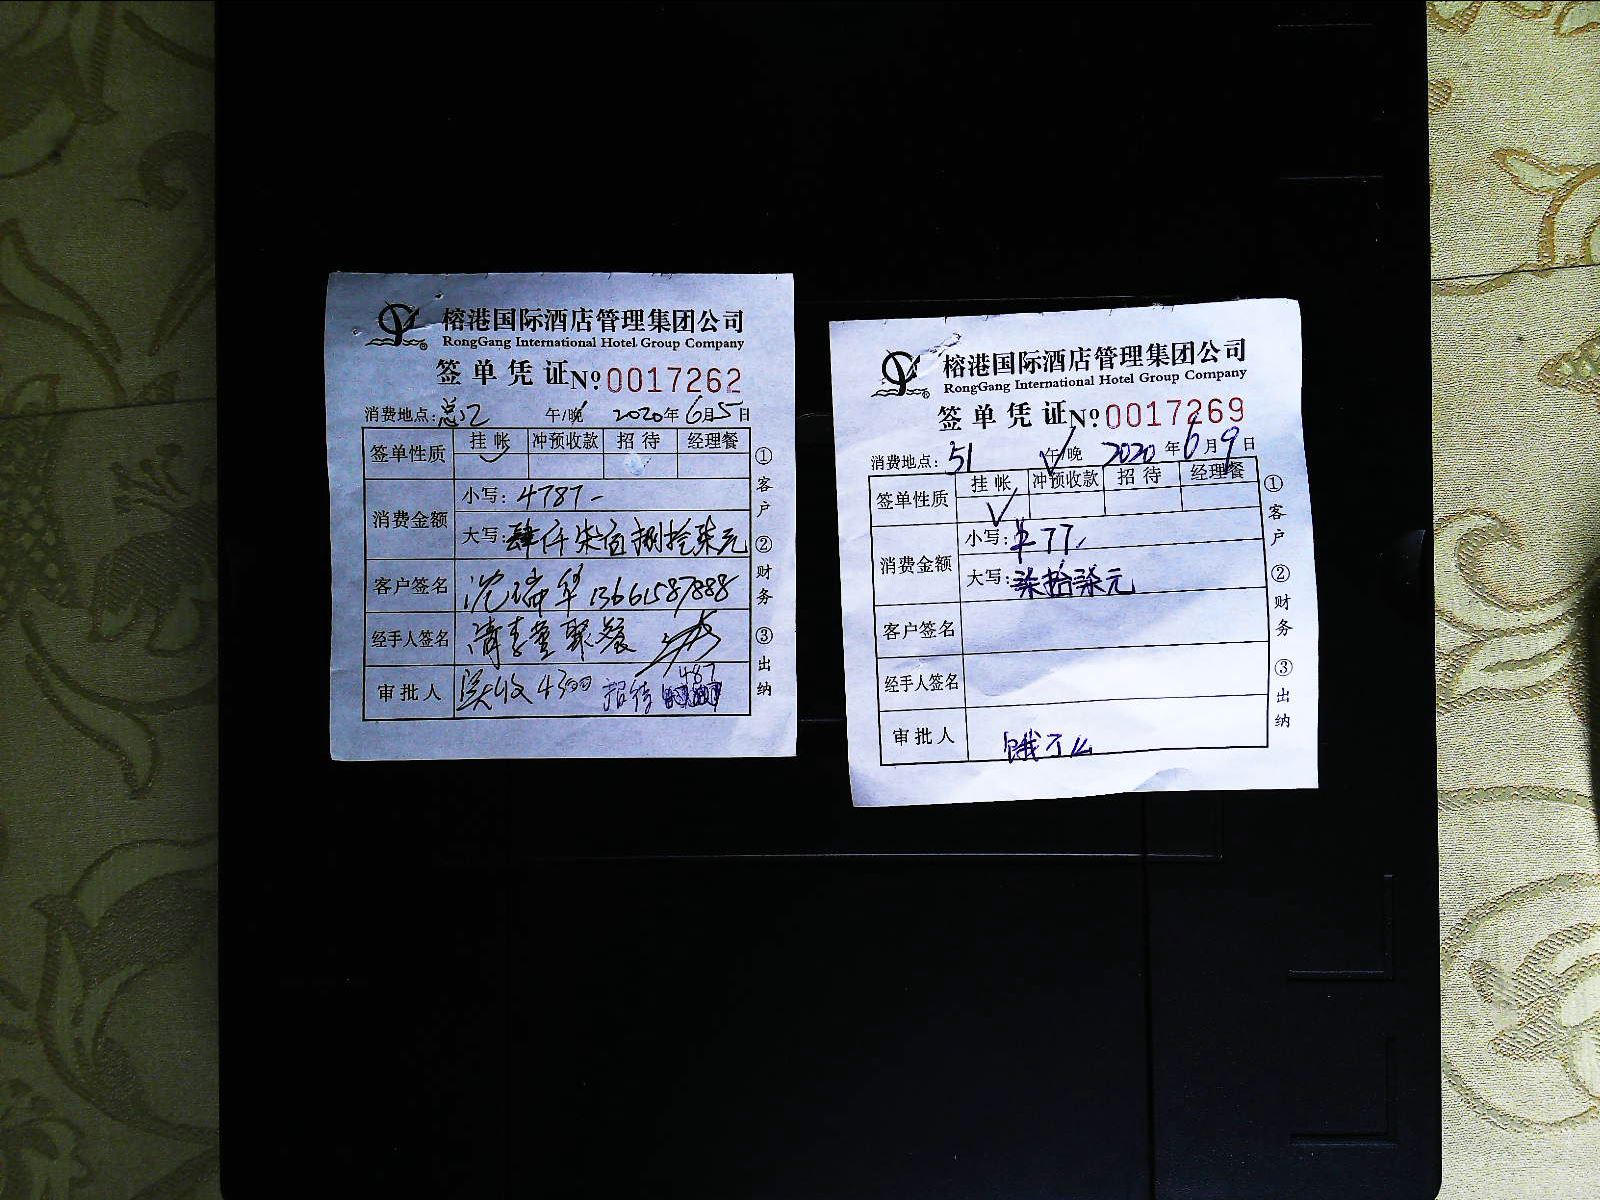 榕港国际酒店管理集团公司
RongGang International Hotel Group Company
签单凭证 № 0017262
消费地点: 午/晚 2020年6月5日
签单性质 挂帐 冲预收款 招待 经理餐
消费金额
小写: 4787-
大写: 肆仟柒佰捌拾柒元
客户签名 沈瑞华 13661587888
经手人签名 聚餐
审批人 实收4300 招待 487
①客户 ②财务 ③出纳
榕港国际酒店管理集团公司
RongGang International Hotel Group Company
签单凭证 № 0017269
消费地点: 51 午/晚 2020年6月9日
签单性质 挂帐 冲预收款 招待 经理餐
消费金额
小写: ¥77
大写: 柒拾柒元
客户签名
经手人签名
审批人 饿了么
①客户 ②财务 ③出纳